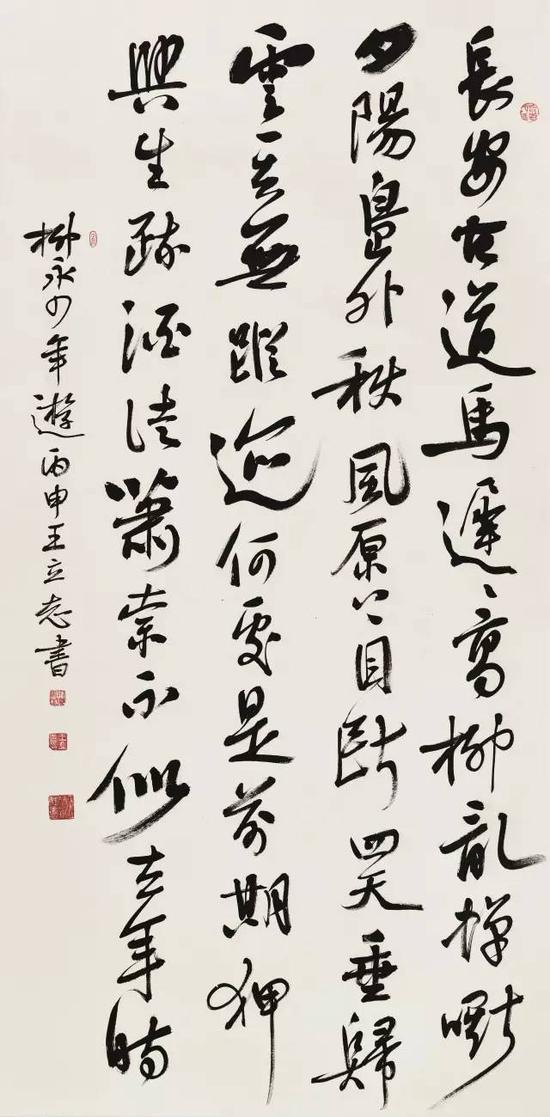 長安古道馬遲〻高柳亂蟬嘶
夕陽島外秋風原上目斷四天垂歸
雲一去無蹤迹何處是前期狎
興生疏酒徒蕭索不似去年時
柳永少年遊丙申王立志書